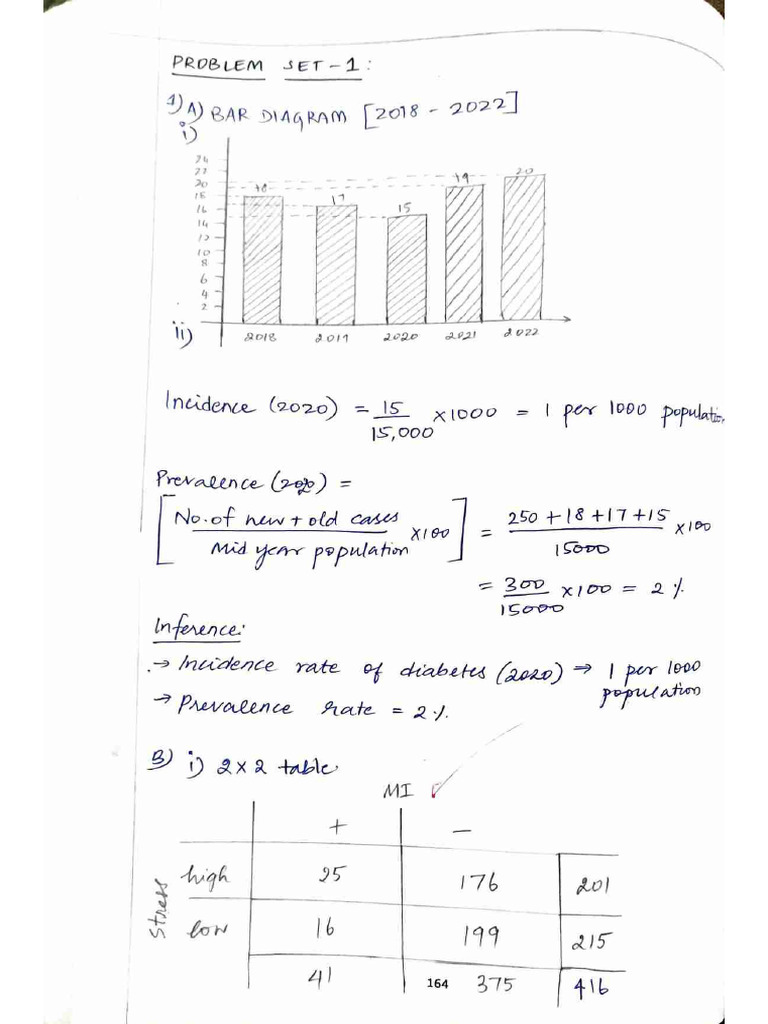 PROBLEM SET-1:
1) A) BAR DIAGRAM [2018 - 2022]
i)
24
22
20
18
16
14
12
10
8
6
4
2
18
17
15
19
20
2018 2019 2020 2021 2022
ii)
Incidence (2020) = 15/15,000 ×1000 = 1 per 1000 population
Prevalence (2020) =
[No. of new + old cases / Mid year population ×100] = 250 + 18 + 17 + 15 / 15000 ×100
= 300/15000 ×100 = 2 %
Inference:
→ Incidence rate of diabetes (2020) → 1 per 1000
population
→ Prevalence rate = 2%.
B) i) 2×2 table
MI
+ −
Stress
high 25 176 201
low 16 199 215
41 375 416
164